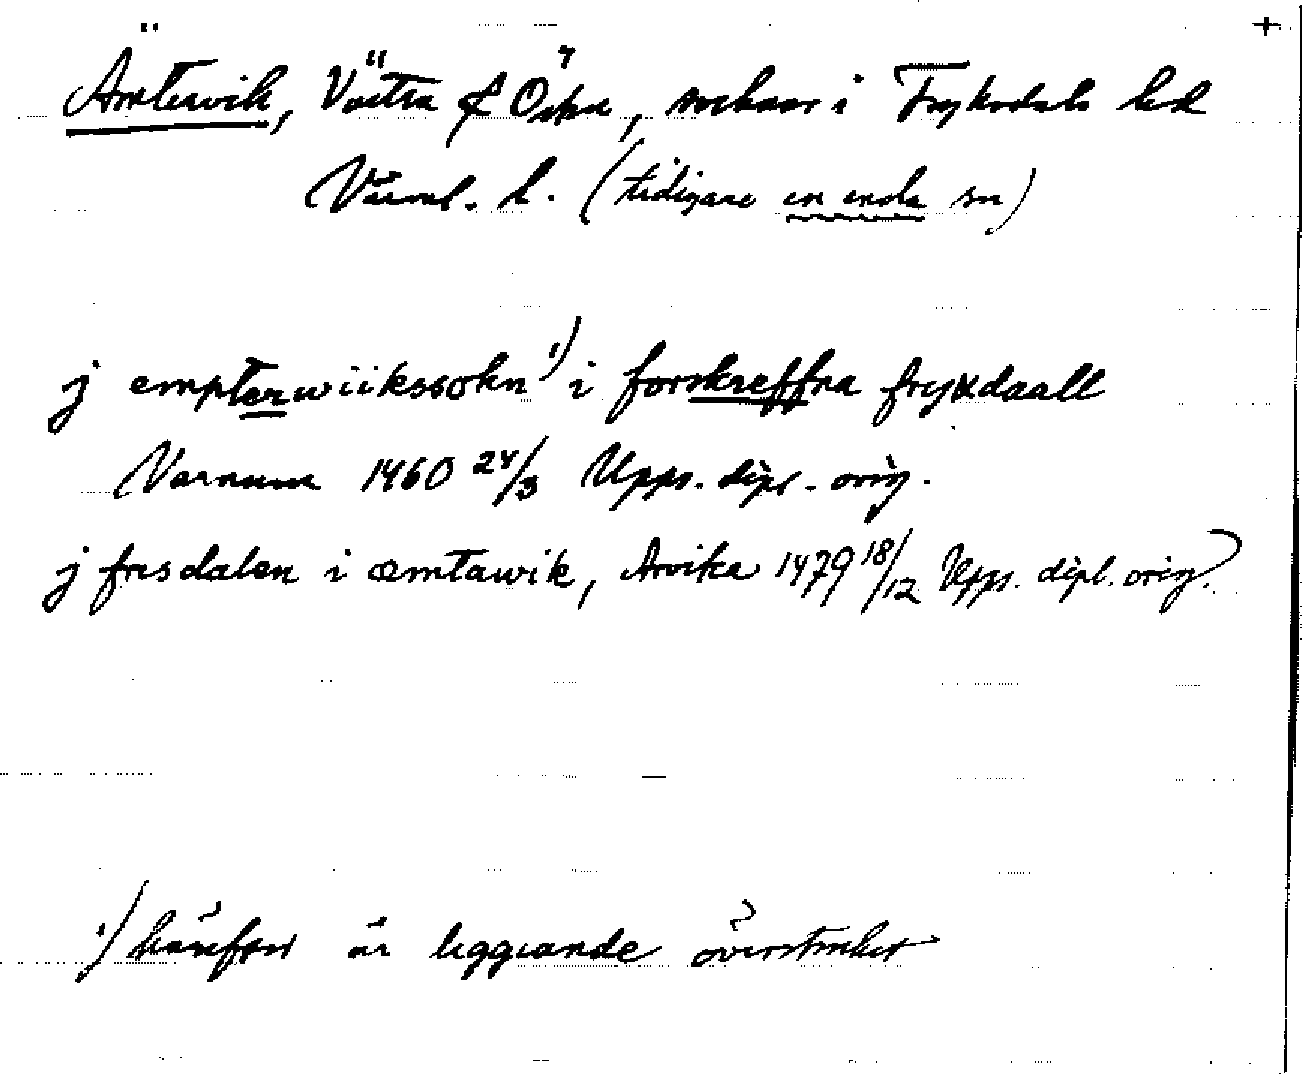 +
Ämtervik, Västra & Östra, socknar i Fryksdals hd
Värml. l. (tidigare en enda sn)
j empterwiikssokn 1) i forskreffna frykdaall
Varnum 1460 24/3 Upps. dipl. orig.
j frisdalen i æmtawik, Arvika 1479 18/12 Upps. dipl. orig.
1) härefter är liggiande överstruket